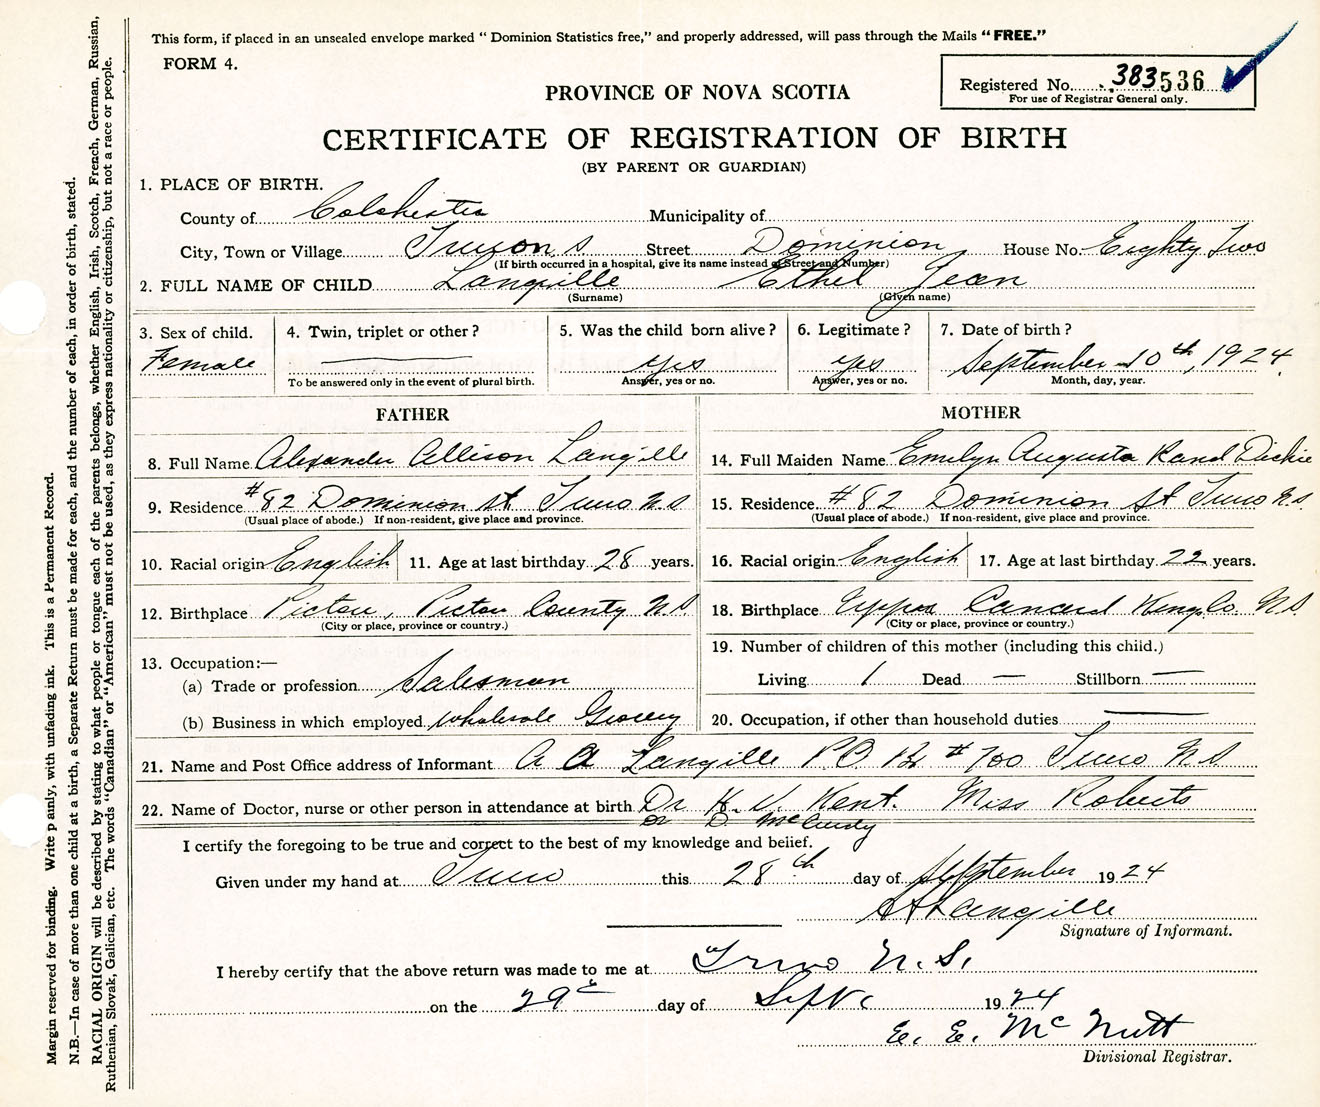 This form, if placed in an unsealed envelope marked "Dominion Statistics free," and properly addressed, will pass through the Mails "FREE."
FORM 4.
Registered No. 383536
For use of Registrar General only.
PROVINCE OF NOVA SCOTIA
CERTIFICATE OF REGISTRATION OF BIRTH
(BY PARENT OR GUARDIAN)
1. PLACE OF BIRTH.
County of Colchester Municipality of
City, Town or Village Street Dominion House No. Eighty Two
(If birth occurred in a hospital, give its name instead of Street and Number)
2. FULL NAME OF CHILD Langille Ethel Jean
(Surname) (Given name)
3. Sex of child. 4. Twin, triplet or other? 5. Was the child born alive? 6. Legitimate? 7. Date of birth?
Female yes yes September 10th, 1924
To be answered only in the event of plural birth. Answer, yes or no. Answer, yes or no. Month, day, year.
FATHER MOTHER
8. Full Name Alexander Allison Langille 14. Full Maiden Name Emelyn Augusta Rand Dickie
9. Residence #82 Dominion St Truro N.S 15. Residence #82 Dominion St Truro N.S.
(Usual place of abode.) If non-resident, give place and province. (Usual place of abode.) If non-resident, give place and province.
10. Racial origin English 11. Age at last birthday 28 years. 16. Racial origin English 17. Age at last birthday 22 years.
12. Birthplace Pictou, Pictou County N.S 18. Birthplace Upper Canard Kings Co. N.S
(City or place, province or country.) (City or place, province or country.)
13. Occupation:— 19. Number of children of this mother (including this child.)
(a) Trade or profession Salesman Living 1 Dead — Stillborn —
(b) Business in which employed Wholesale Grocery 20. Occupation, if other than household duties
21. Name and Post Office address of Informant A A Langille P.O Bx #700 Truro N.S
22. Name of Doctor, nurse or other person in attendance at birth Dr H. V. Kent. Miss Roberts
Dr D. McCurdy
I certify the foregoing to be true and correct to the best of my knowledge and belief.
Given under my hand at Truro this 28th day of September 1924
A A Langille
Signature of Informant.
I hereby certify that the above return was made to me at Truro N.S.
on the 29th day of Sept. 1924
E. E. McNutt
Divisional Registrar.
Margin reserved for binding. Write plainly, with unfading ink. This is a Permanent Record.
N.B.—In case of more than one child at a birth, a Separate Return must be made for each, and the number of each, in order of birth, stated.
RACIAL ORIGIN will be described by stating to what people or tongue each of the parents belongs, whether English, Irish, Scotch, French, German, Russian,
Ruthenian, Slovak, Galician, etc. The words "Canadian" or "American" must not be used, as they express nationality or citizenship, but not a race or people.